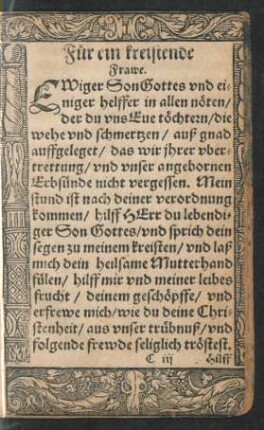 Für ein kreistende
Frawe.
EWiger Son Gottes vnd ei-
niger helffer in allen nöten/
der du vns Eue töchtern/die
wehe vnd schmertzen/ auß gnad
auffgeleget/ das wir jhrer vber-
trettung/ vnd vnser angebornen
Erbsünde nicht vergessen. Mein
stund ist nach deiner verordnung
kommen/ hilff HErr du lebendi-
ger Son Gottes/vnd sprich dein
segen zu meinem kreisten/ vnd laß
mich dein heilsame Mutterhand
fülen/ hilff mir vnd meiner leibes
frucht/ deinem geschöpffe/ vnd
erfrewe mich/wie du deine Chri-
stenheit/ aus vnser trübnuß/vnd
folgende frewde seliglich tröstest.
C iij Hilff